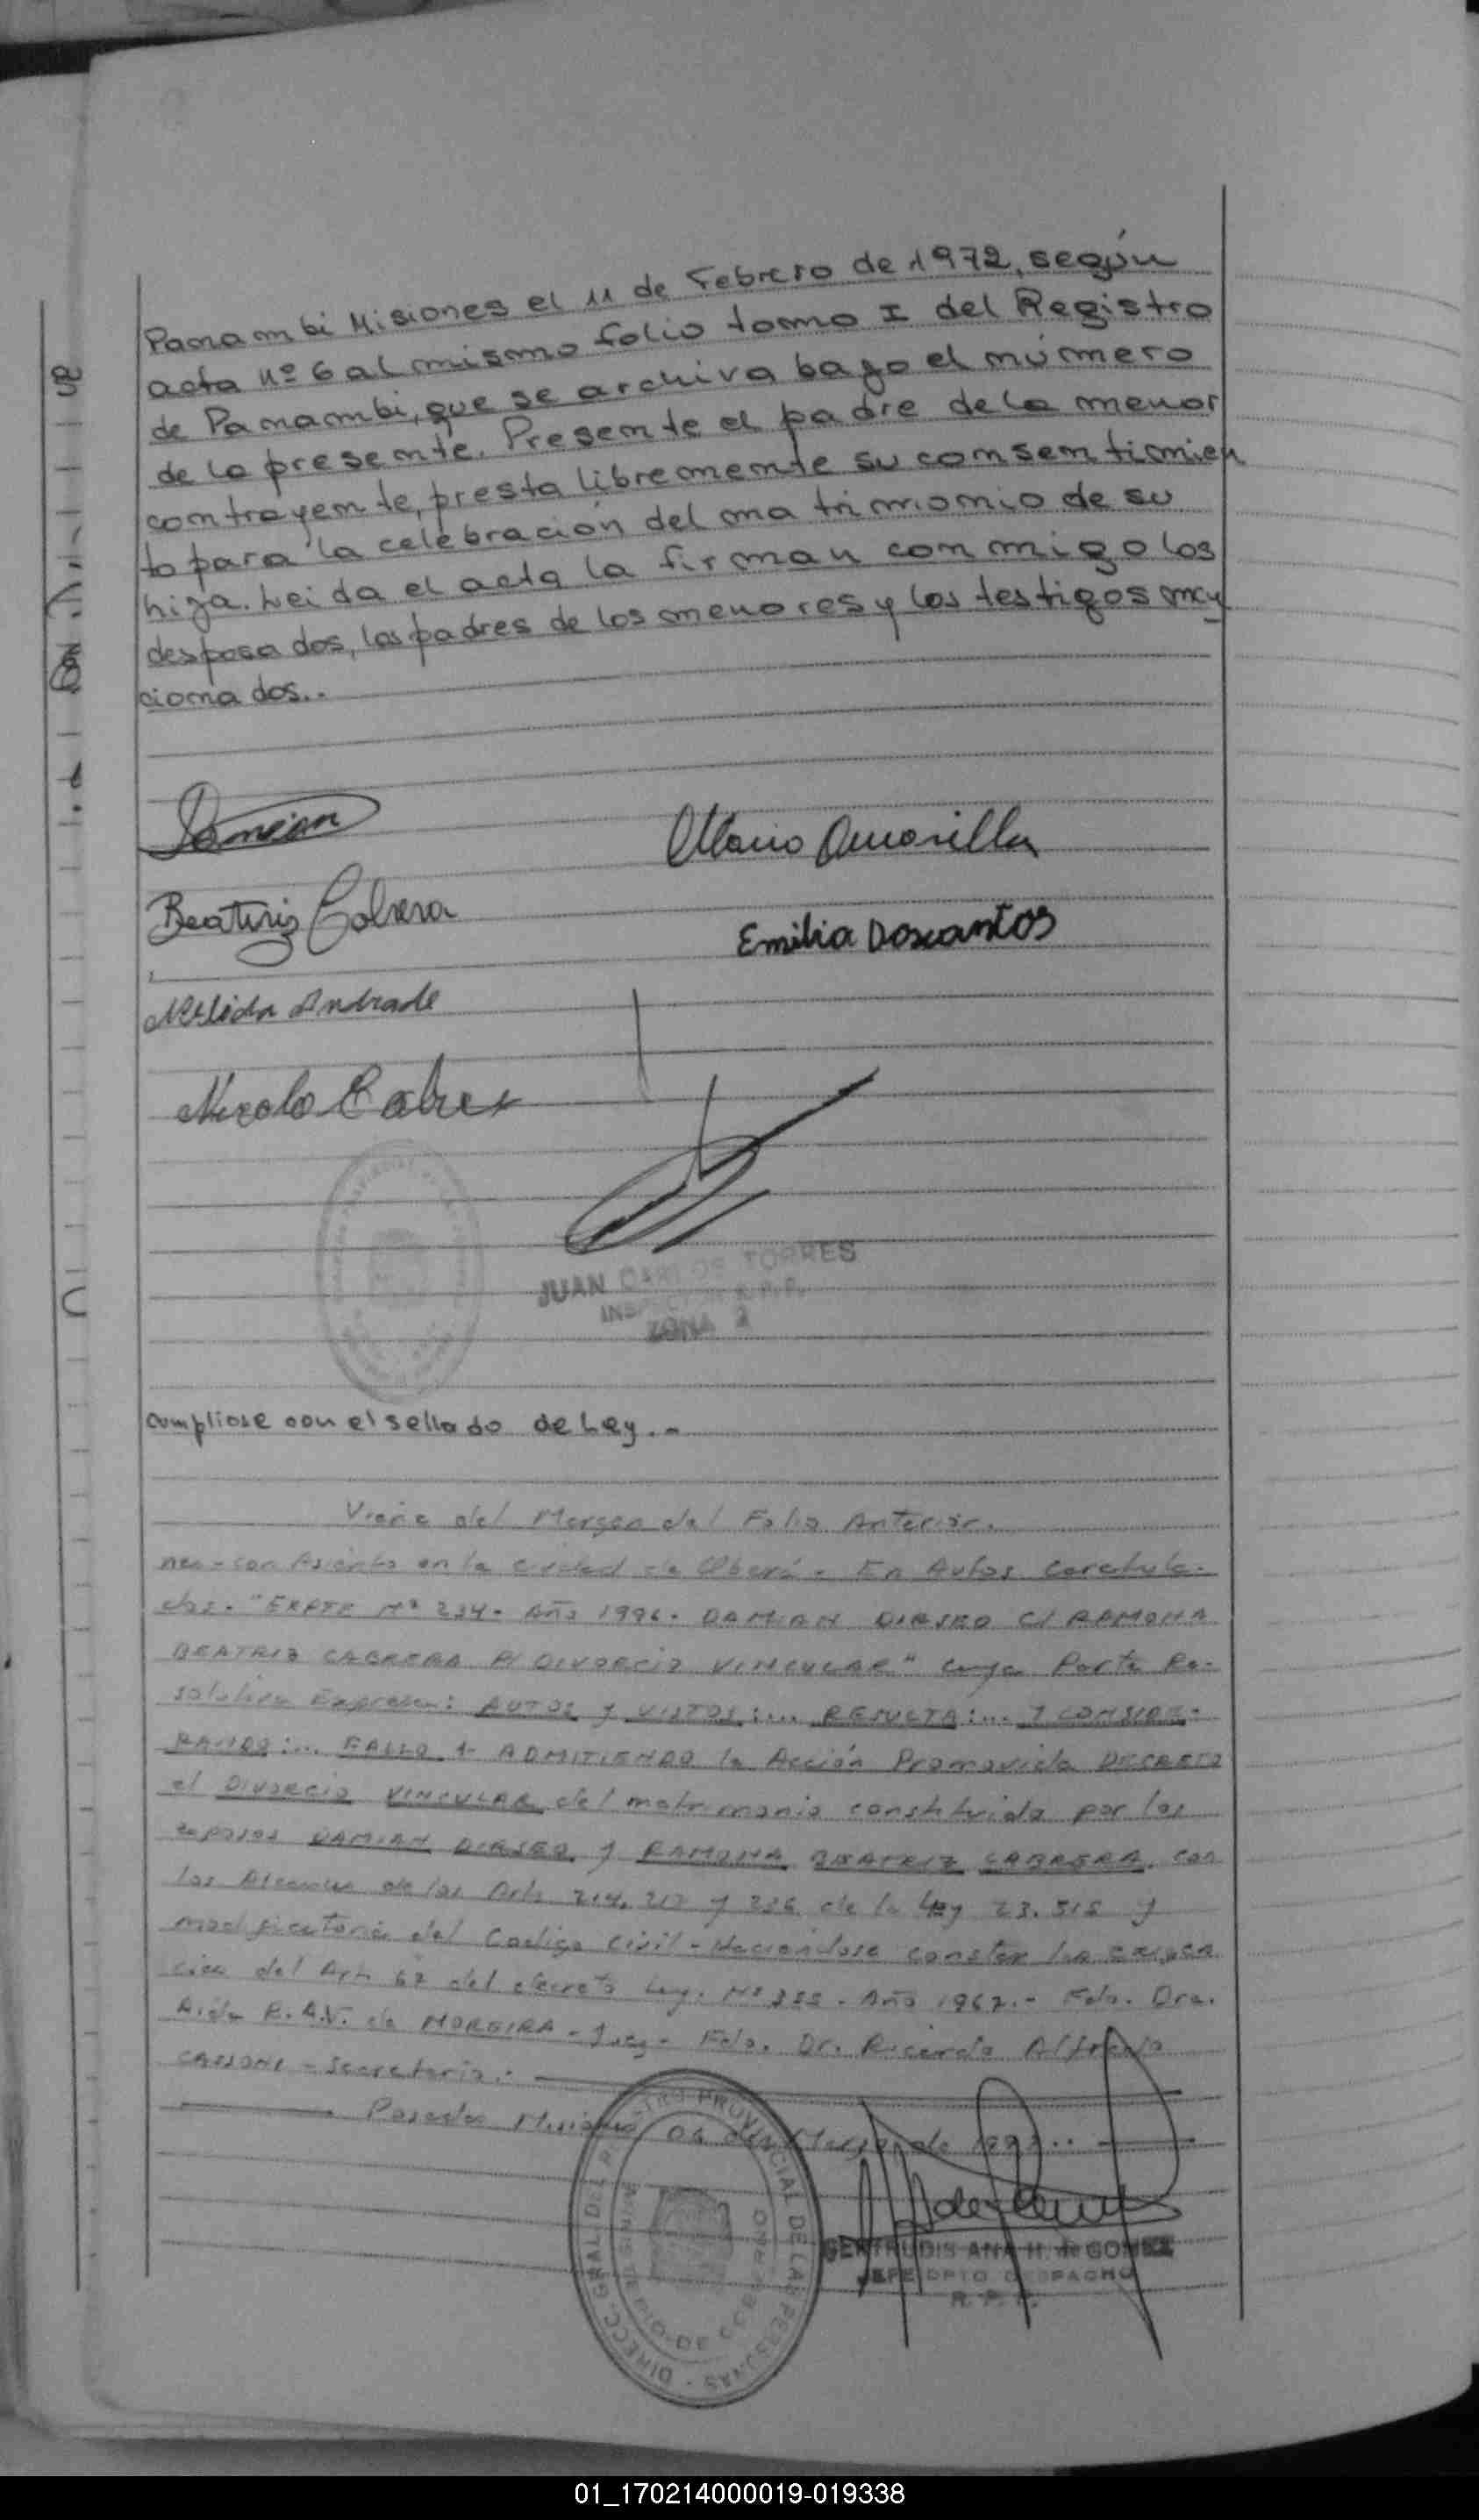 Panambi Misiones el 11 de Febrero de 1972, según
acta nº 6 al mismo folio tomo I del Registro
de Panambi, que se archiva bajo el número
de la presente. Presente el padre de la menor
contrayente, presta libremente su consentimien
to para la celebración del matrimonio de su
hija. Leida el acta la firman conmigo los
desposados, los padres de los menores y los testigos men
cionados..
Damian
Mario Amarilla
Beatriz Cabrera
Emilia Doscantos
Nelida Andrade
JUAN CARLOS TORRES
INSPECTOR R.P.P.
ZONA 2
Cumpliose con el sellado de Ley.-
Viene del Margen del Folio Anterior.
nes - con Asiento en la ciudad de Oberá. En Autos Caratula-
dos. "EXPTE Nº 234. Año 1996. DAMIAN DIRSEO C/ RAMONA
BEATRIZ CABRERA P/ DIVORCIO VINCULAR" cuya Parte Re-
solutiva Expresa: AUTOS y VISTOS:... RESULTA:... Y CONSIDE-
RANDO:... FALLO 1- ADMITIENDO la Acción Promovida DECRETO
el DIVORCIO VINCULAR del matrimonio constituido por los
esposos DAMIAN DIRSEO y RAMONA BEATRIZ CABRERA, con
los Alcances de los Arts 214, 217 y de la Ley 23.515 y
modificatoria del Codigo Civil - Haciendose constar la
del Art. del decreto Ley. Nº Año 1967.- Fdo. Dra.
Aida R.A.V. de MOREIRA - Juez - Fdo. Dr. Ricardo Alfredo
CASSONI - Secretario.-
Posadas Misiones 04 de Marzo de
DIRECC. GRAL. DEL REGISTRO PROVINCIAL DE LAS PERSONAS
GERTRUDIS ANA H. de GOMEZ
JEFE DPTO DESPACHO
R. P. P.
01_170214000019-019338